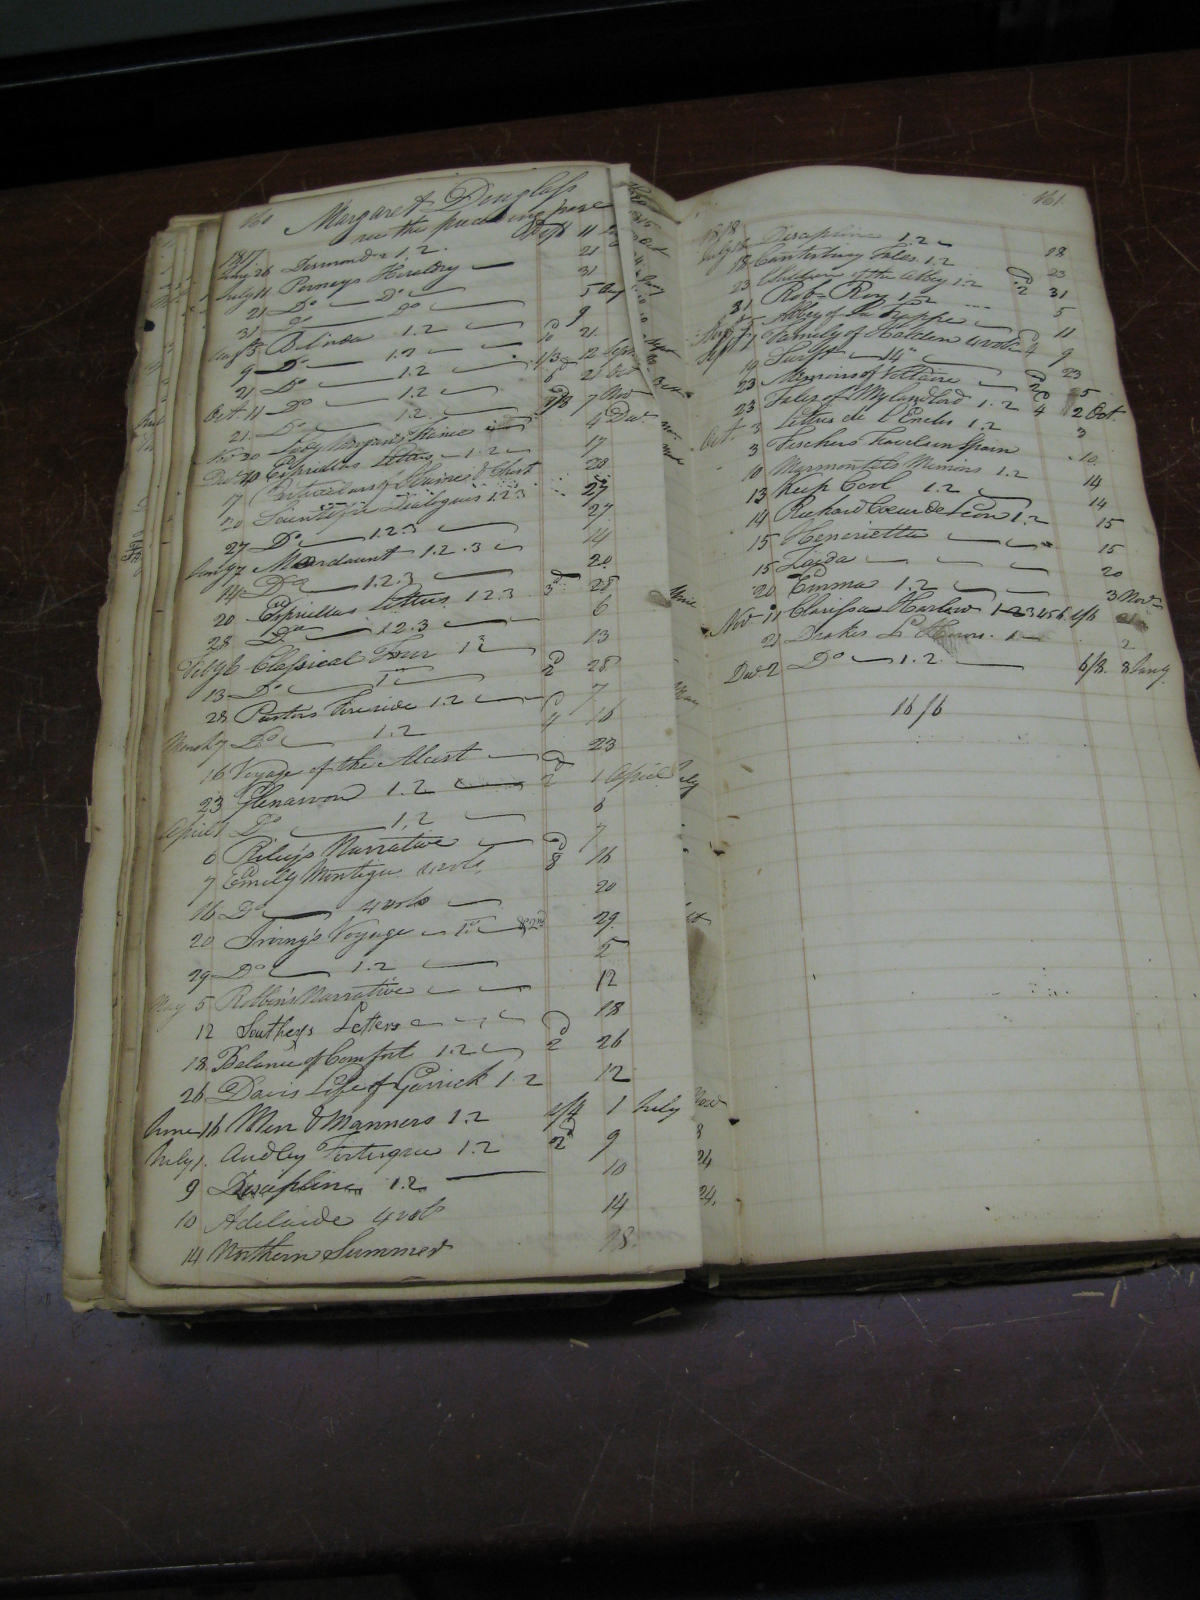 160 Margaret Douglass
see the preceding page
1817
May 26 Desmond 1.2. 11
July 11 Porneys Heraldry 21
21 Do Do 31
31 Do Do 5 Aug
Aug 5 Belinda 1.2 9
9 Do 1.2 21
21 Do 1.2 1/3 12 Sepr
Oct 11 Do 1.2 21 Oct
21 Do 1.2 7 Nov
Nov 20 Lady Morgan's France 4 Dec
Dec 4 Espriellas Letters 1.2 17
7 20
20 Scientific Dialogues 1.2.3 27
27 Do 1.2.3 7
Jany 7 Mordaunt 1.2.3 14
14 Do 1.2.3 20
20 Espriellas Letters 1.2.3 3d 28
28 Do 1.2.3 6
Feby 6 Classical Tour 1 13
13 Do 1 2d 28
28 Pastors Fireside 1.2 7
March 7 Do 1.2 4 16
16 Voyage of the Alcest 23
23 Glenarvon 1.2 2d 1 April
April 1 Do 1.2 6
6 Riley's Narrative 7
7 Emily Montigue 4 vols 8d 16
16 Do 4 vols 20
20 Irving's Voyage 29
29 Do 1.2 5
May 5 Robbin's Narrative 12
12 Southeys Letters 18
18 Balance of Comfort 1.2 2d 26
26 Davis Life of Garrick 1.2 12
June 16 Men & Manners 1.2 1 July
July 1. Audley Fortescue 1.2 2d 9
9 Discipline 1.2 10
10 Adelaide 4 vols 14
14 Northern Summer 28.
161.
1818
July 16 Discipline 1.2
18 Canterbury Tales 1.2 23
23 Children of the Abbey 1.2 2d 31
31 Rob Roy 1.2 5
Abbey of La Trappe 11
Family of Halden 4 vols 4d 9
19 Swift 14 23
23 Memoirs of Voltaire 2d 5
23 Tales of My landlord 1.2 4d 2 Oct
Oct 3 Letters de L'Enclos 1.2 3
3 Fischers travels in Spain 10
10 Marmontels Memoirs 1.2 14
13 Keep Cool 1.2 14
14 Richard Coeur de Leon 1.2 15
15 Henerietta 15
15 Zaida 20
20 Emma 1.2 3 Nov
Nov 11 Clarissa Harlow 1 2 3 4 5 6 21
21 Drakes L. Hours. 1 2
Dec 2 Do 1.2 6/8. 8 Jany
16/6